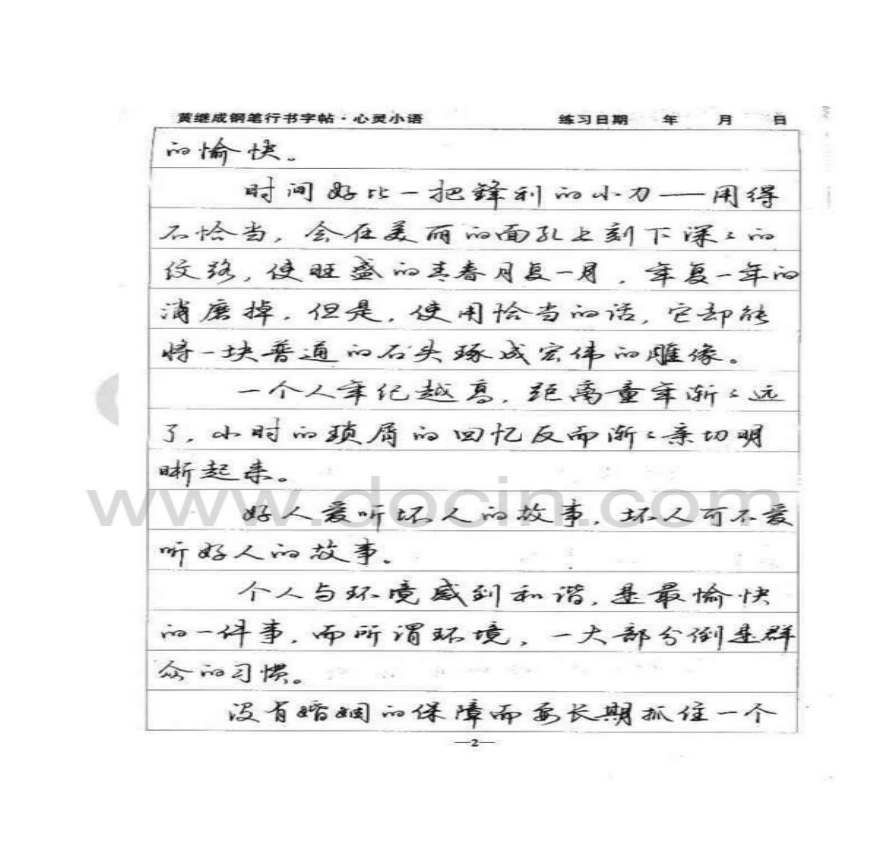 黄继成钢笔行书字帖·心灵小语 练习日期 年 月 日
的愉快。
时间好比一把鋒利的小刀——用得
不恰当，会在美丽的面孔上刻下深〻的
纹路，使旺盛的青春月复一月，年复一年的
消磨掉，但是，使用恰当的话，它却能
将一块普通的石头琢成宏伟的雕像。
一个人年纪越高，距离童年渐〻远
了，小时的琐屑的回忆反而渐〻亲切明
晰起来。
www.docin.com
好人爱听坏人的故事，坏人可不爱
听好人的故事。
个人与环境感到和谐，是最愉快
的一件事，而所谓环境，一大部分倒是群
众的习惯。
没有婚姻的保障而要长期抓住一个
—2—